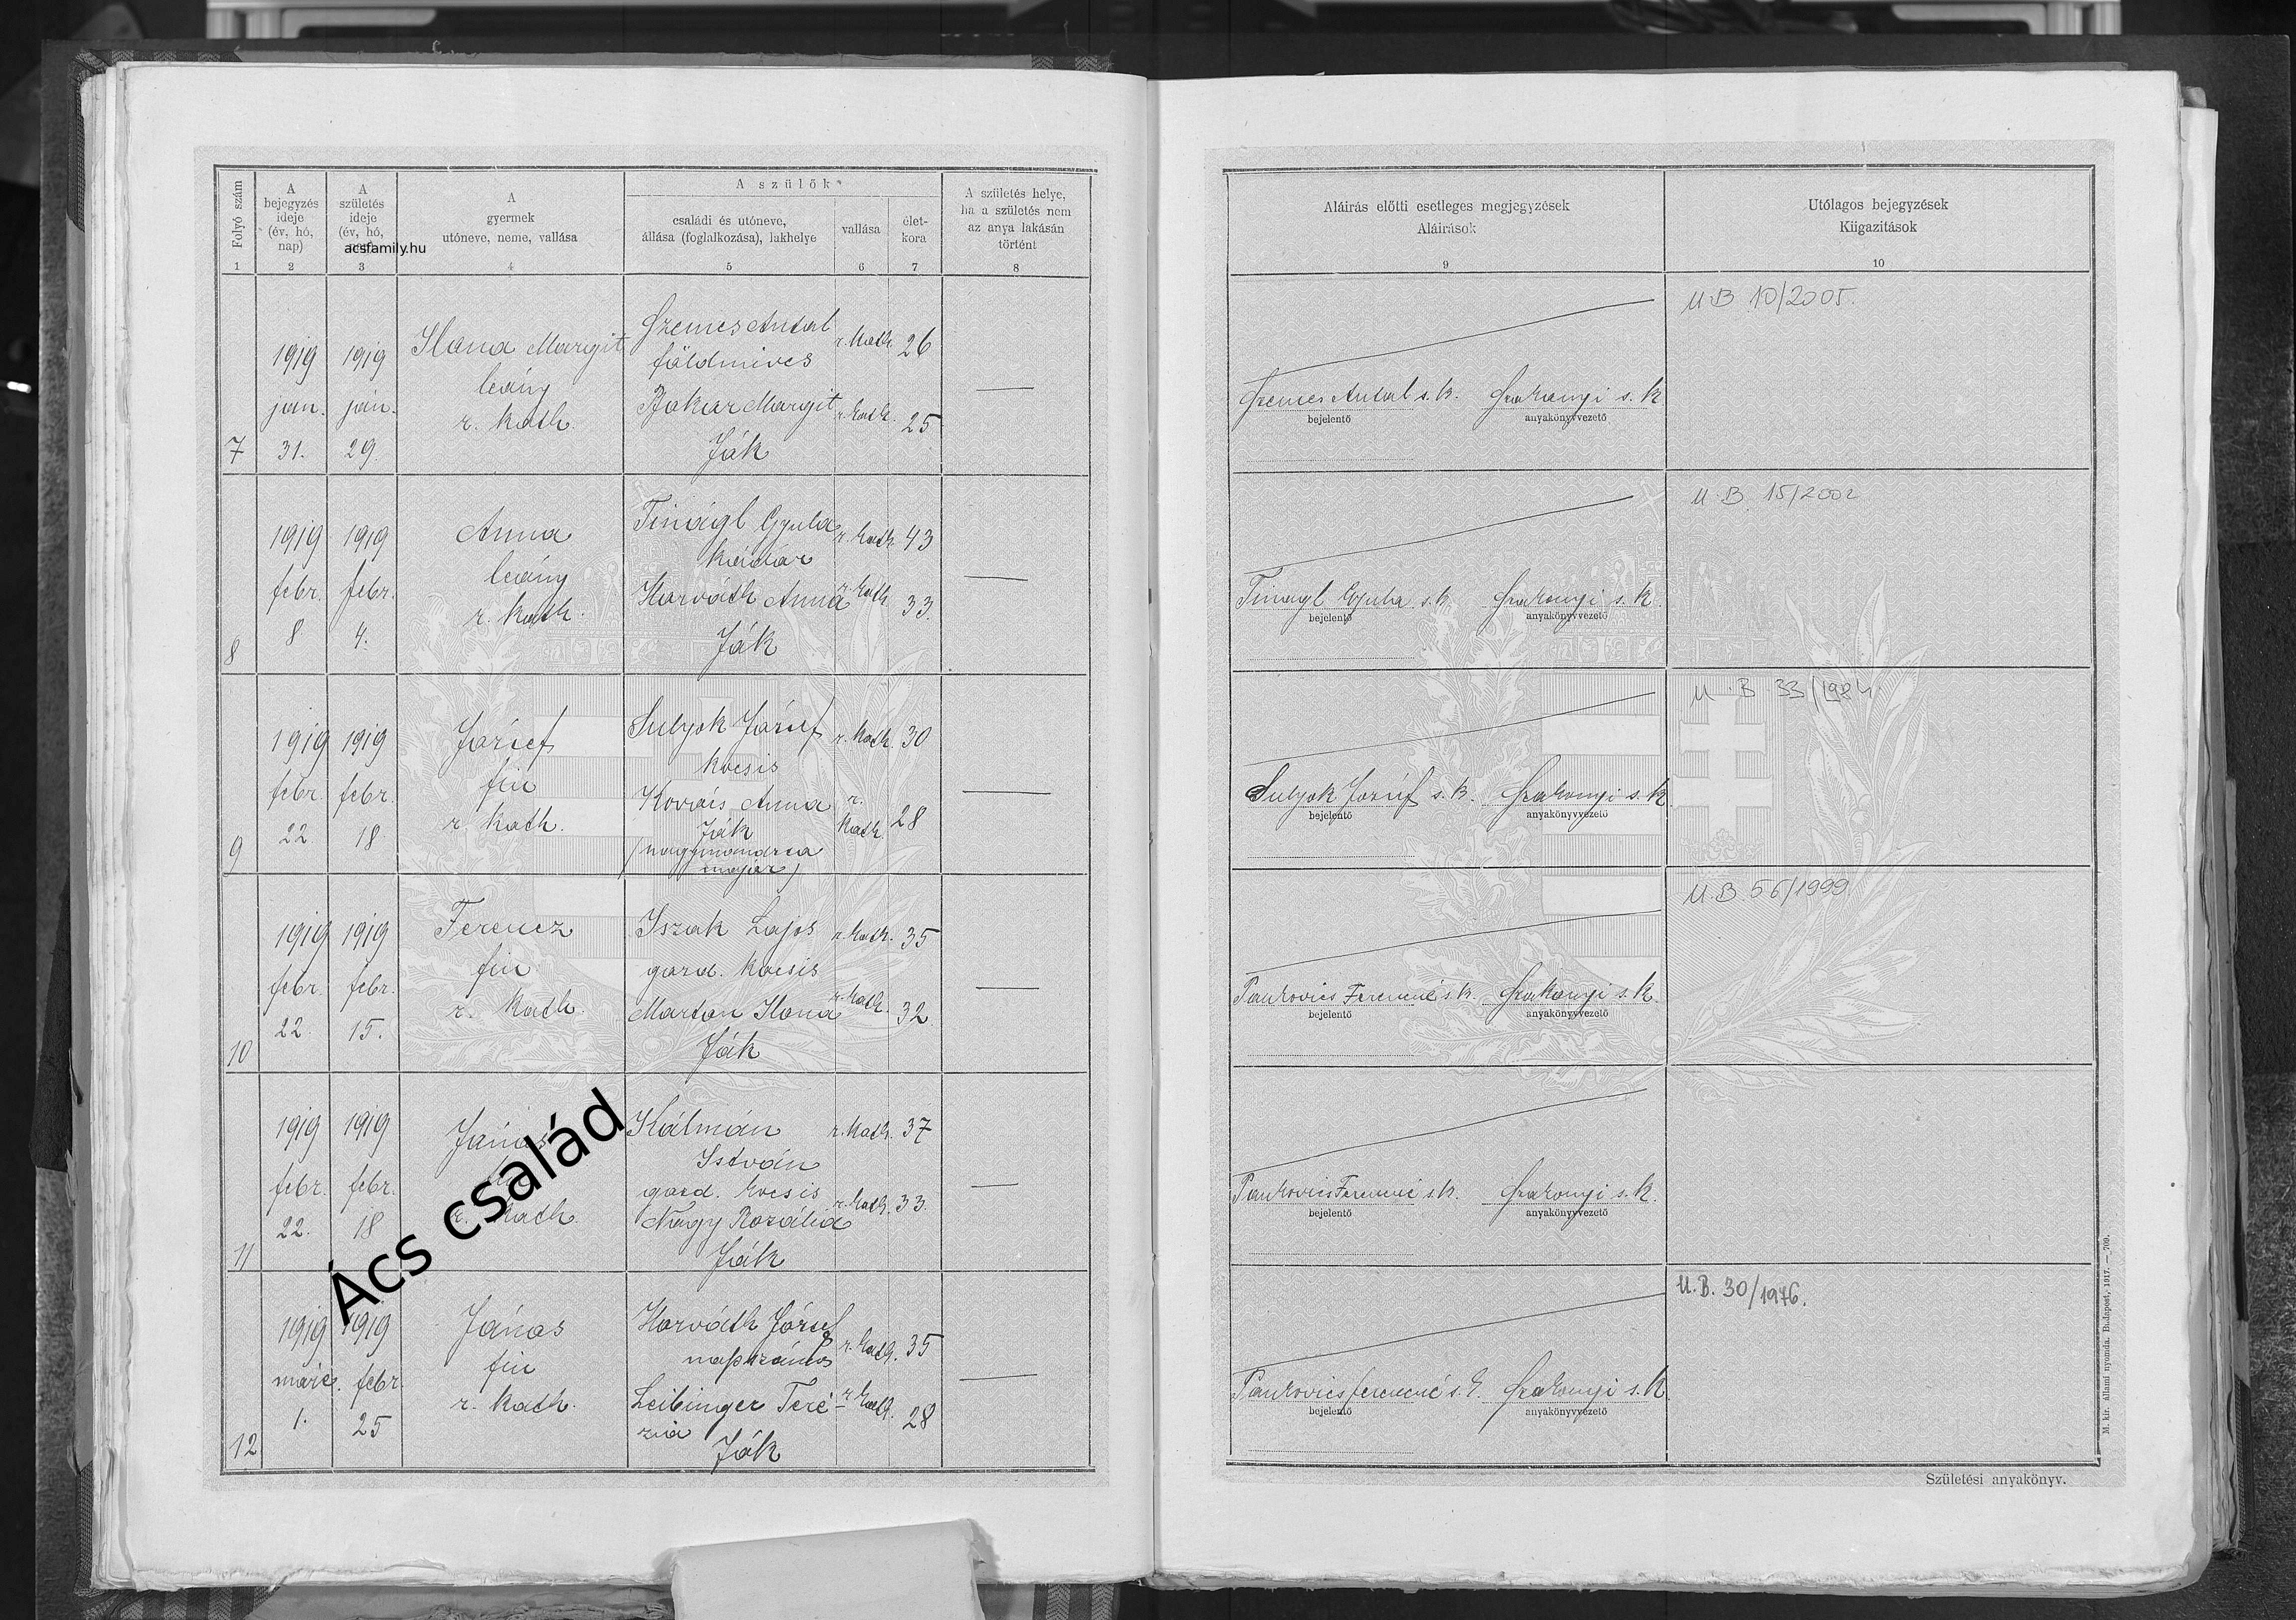 Folyó szám
A bejegyzés ideje (év, hó, nap)
A születés ideje (év, hó,
acsfamily.hu
A gyermek utóneve, neme, vallása
A szülők
családi és utóneve, állása (foglalkozása), lakhelye
vallása
élet-kora
A születés helye, ha a születés nem az anya lakásán történt
1 2 3 4 5 6 7 8
7
1919 jan. 31.
1919 jan. 29.
Ilona Margit
leány
r. kath.
Szemes Antal
földmives
r. kath. 26
Margit
r. kath. 25
Ják
8
1919 febr. 8
1919 febr. 4.
Anna
leány
r. kath.
Tinágl Gyula
kádár
r. kath. 43
Horváth Anna
r. kath. 33.
Ják
9
1919 febr. 22
1919 febr. 18
József
fiu
r. kath.
Sulyok József
kocsis
r. kath. 30
Kovács Anna
r. kath. 28
Ják
10
1919 febr. 22.
1919 febr. 15.
Ferencz
fiu
r. kath.
Iszak Lajos
gazd. kocsis
r. kath. 35
Marton Ilona
r. kath. 32
Ják
11
1919 febr. 22.
1919 febr. 18
János
r. kath.
Kálmán
István
gazd. kocsis
r. kath. 37
Nagy Rozália
r. kath. 33.
Ják
Ács család
12
1919 márc. 1.
1919 febr. 25
János
fiu
r. kath.
Horváth József
napszámos
r. kath. 35
Leibinger Teré-
zia
r. kath. 28
Ják
Aláirás előtti esetleges megjegyzések
Aláirások
9
Utólagos bejegyzések
Kiigazitások
10
U.B 10/2005.
Szemes Antal s. k. Szakonyi s. k.
bejelentő anyakönyvvezető
U.B. 15/2002
Tinagl Gyula s. k. Szakonyi s. k.
bejelentő anyakönyvvezető
U.B. 33/1984.
Sulyok József s. k. Szakonyi s. k.
bejelentő anyakönyvvezető
U.B. 56/1999
Pankovics Ferencné s. k. Szakonyi s. k.
bejelentő anyakönyvvezető
Pankovics Ferencné s. k. Szakonyi s. k.
bejelentő anyakönyvvezető
U.B. 30/1976.
Pankovics Ferencné s. k. Szakonyi s. k.
bejelentő anyakönyvvezető
M. kir. állami nyomda. Budapest, 1917. — 709.
Születési anyakönyv.